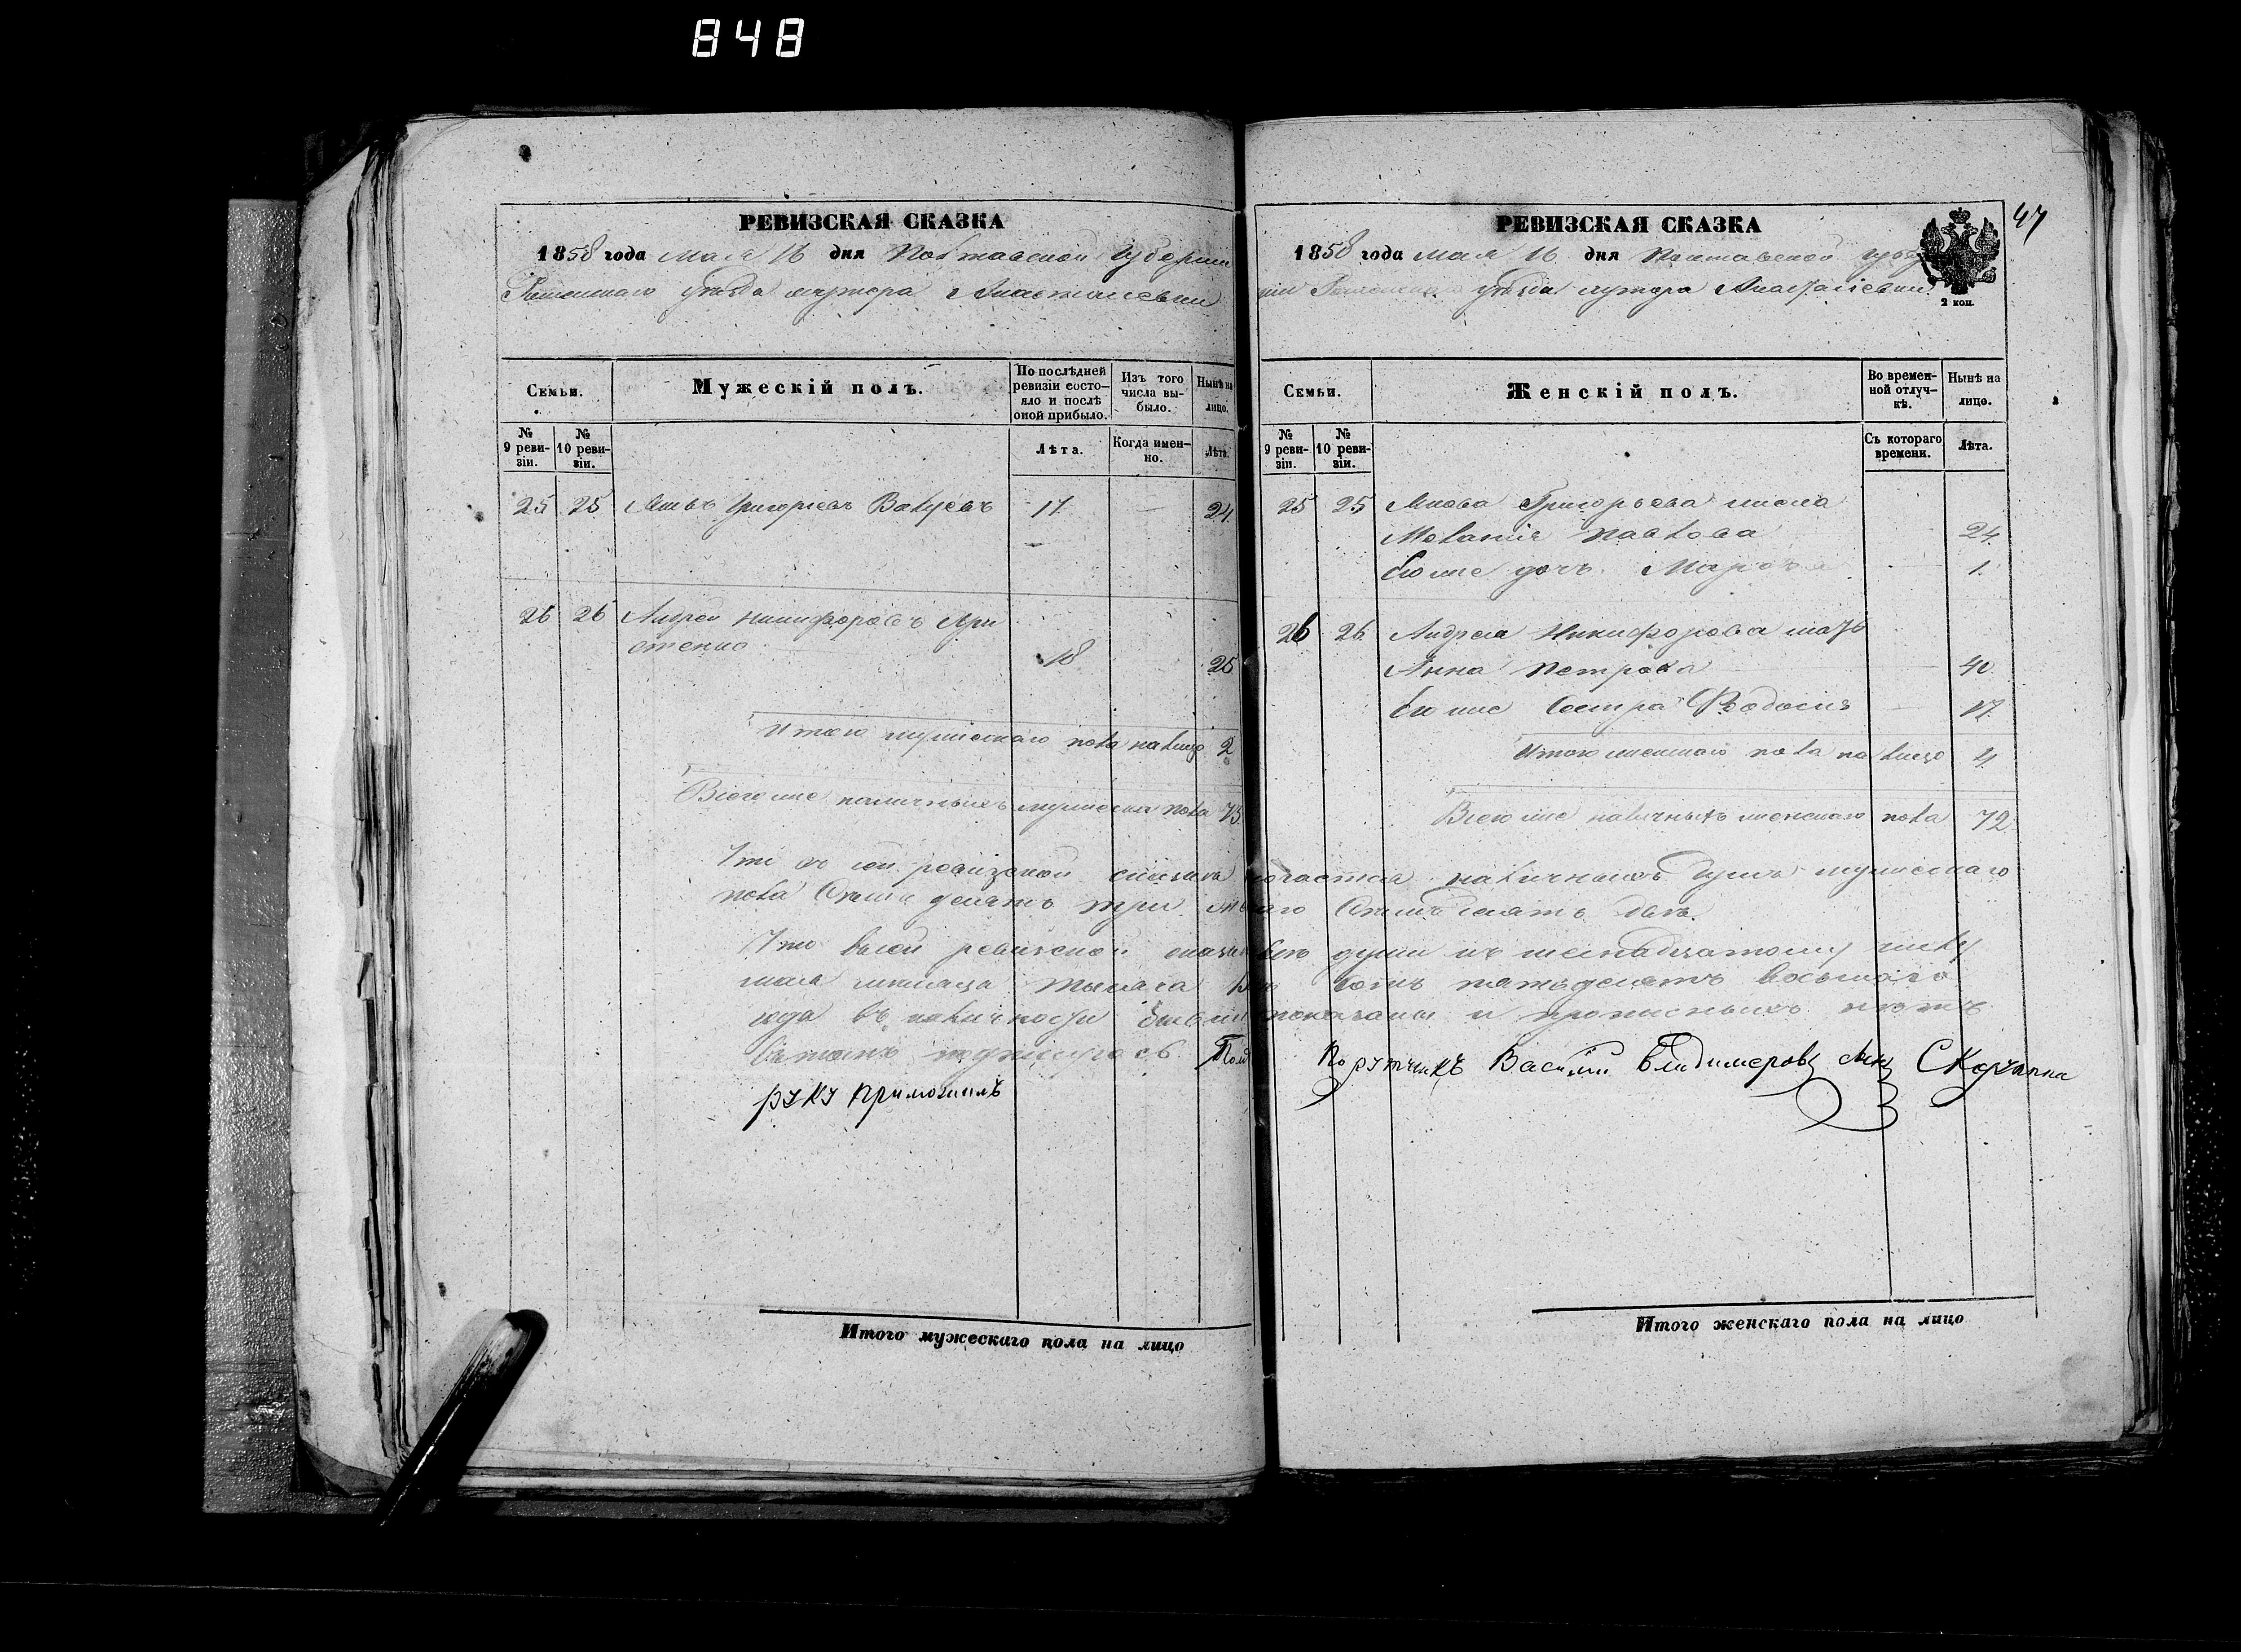 848
РЕВИЗСКАЯ СКАЗКА
1858 года мая 16 дня Полтавской Губернии
уѣзда хутора
Семьи.
Мужескій полъ.
По послѣдней ревизіи состояло и послѣ оной прибыло.
Изъ того числа выбыло.
Нынѣ на лицо.
№ 9 ревизіи.
№ 10 ревизіи.
Лѣта.
Когда именно.
Лѣта.
25 25 Григорьевъ 17 — 24
26 26 Андрей Никифоровъ
18 25
Итого мужескаго пола налицо 2
Всего же наличныхъ мужеска пола 73
РЕВИЗСКАЯ СКАЗКА
47
1858 года мая 16 дня Полтавской губер
ніи уѣзда хутора
2 коп.
Семьи.
Женскій полъ.
Во временной отлучкѣ.
Нынѣ на лицо.
№ 9 ревизіи.
№ 10 ревизіи.
Съ котораго времени.
Лѣта.
25 25 Григорьева жена
Меланія Павлова 24
Его же дочь 1
26 26 Андрея Никифорова мать
Анна Петрова — 40
Его же Сестра Федосія — 17
Итого женскаго пола на лицо 4
Всего же наличныхъ женскаго пола 72
Что въ сей ревизской наличныхъ душъ мужескаго
пола семьдесятъ три женскаго семьдесятъ два.
Что въ сей ревизской души къ шестнадцатому числу
мая мѣсяца тысяча сотъ пятьдесятъ восьмаго
года въ наличности показаны и прописныхъ нѣтъ
въ томъ Поручикъ Василій Владимеровъ сынъ
руку приложилъ
Итого мужескаго пола на лицо
Итого женскаго пола на лицо